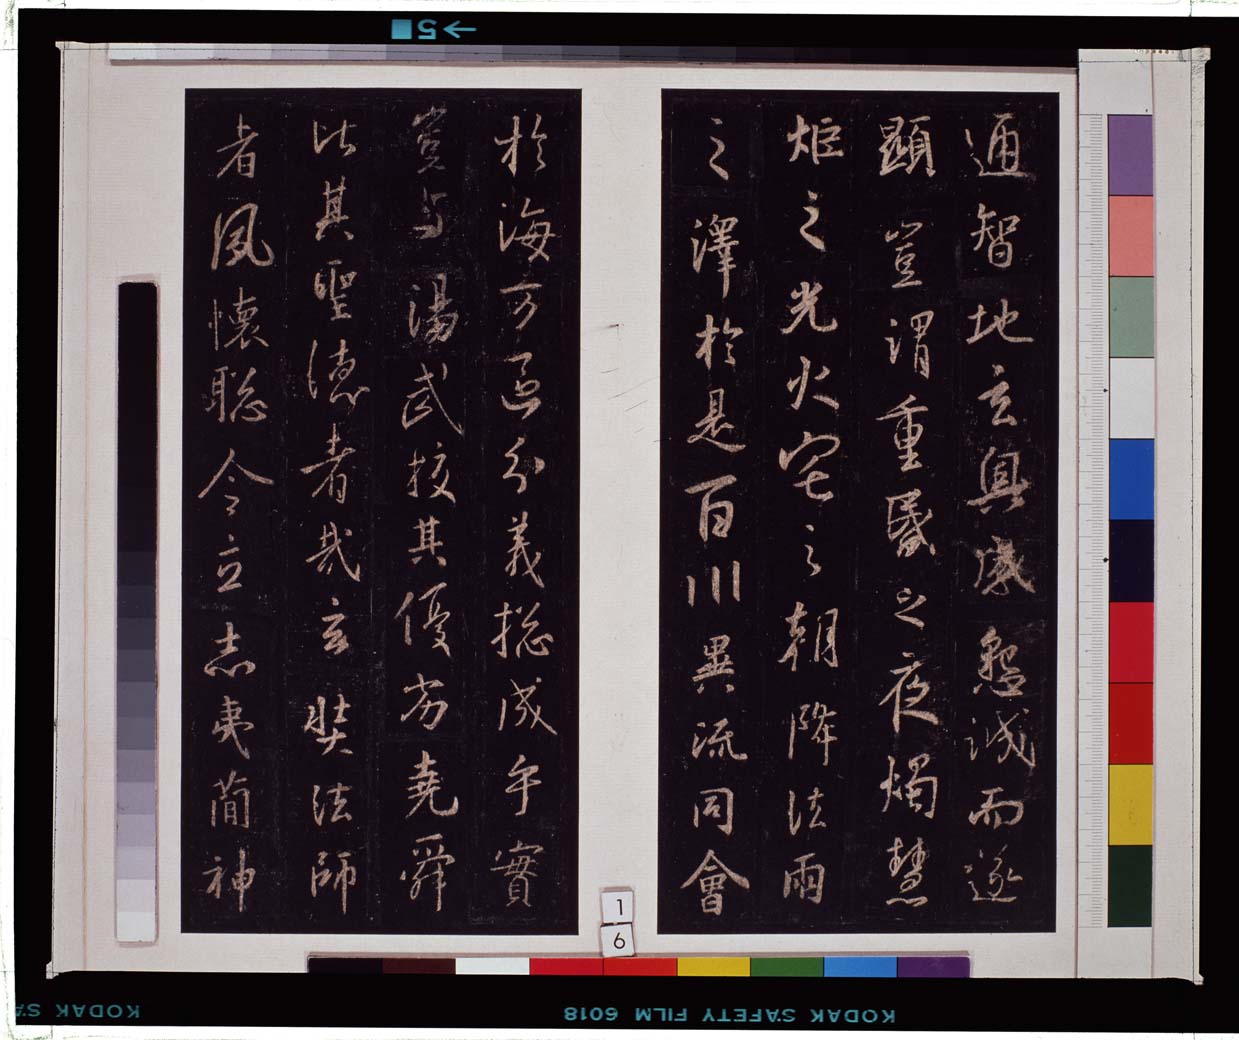 通智地玄奧感懇誠而遂
顯豈謂重昏之夜燭慧
炬之光火宅之朝降法雨
之澤於是百川異流同會
於海方區分義摠成乎實
豈與湯武挍其優劣堯舜
比其聖德者哉玄奘法師
者夙懷聰令立志夷簡神
→5
1
6
KODAK SAFETY FILM 6018
KODAK SA